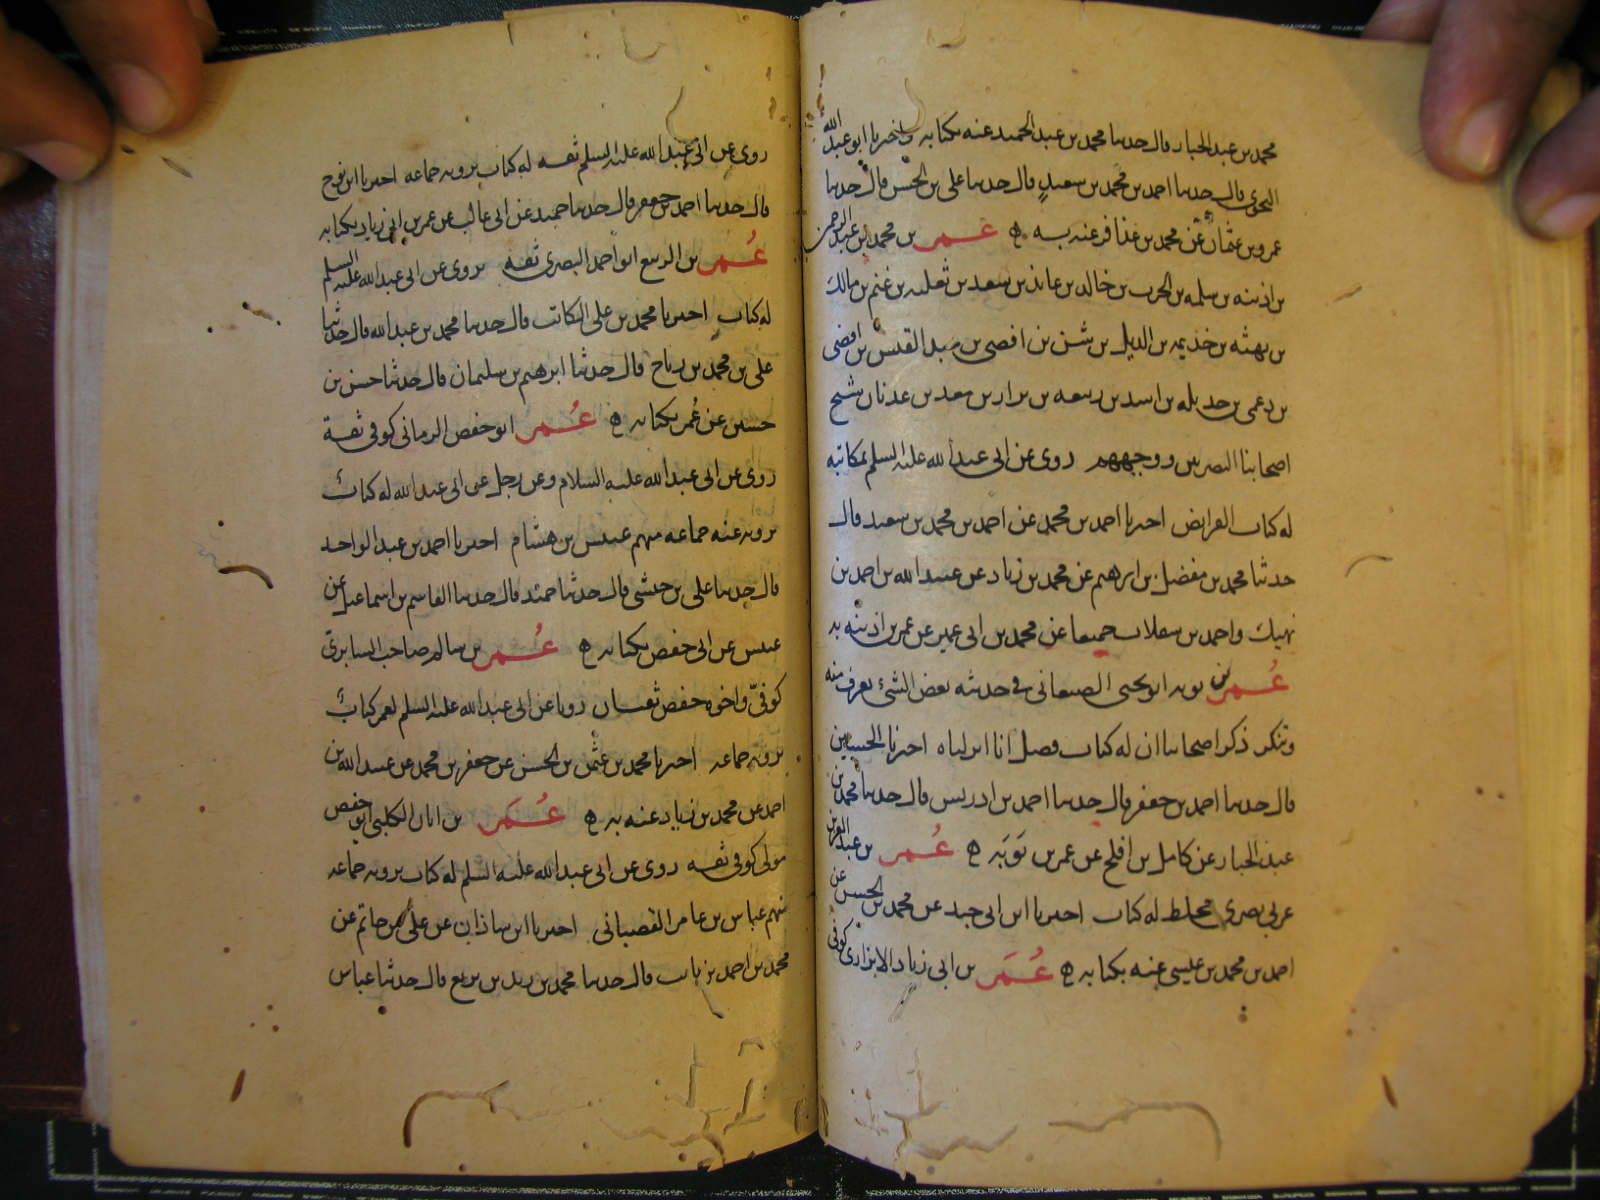 محمد بن عبد الجبار قال حدثنا محمد بن عبد الحميد عنه بكتابه واخبرنا ابو عبد الله
النحوي قال حدثنا احمد بن محمد بن سعيد قال حدثنا على بن الحسن قال حدثنا
عمرو بن عثمان عن محمد بن عذافر عنه به ه عمر بن محمد بن عبد الرحمن
بن اذينه بن سلمه بن الحرث بن خالد بن عائذ بن سعد بن ثعلبه بن غنم بن مالك
بن بهثه بن خذيمه بن الديل بن شن بن افصى بن عبد القيس بن افصى
بن دعمى بن جديله بن اسد بن ربيعه بن نزار بن معد بن عدنان شيخ
اصحابنا البصريين ووجههم روى عن ابى عبد الله عليه السلم بمكاتبه
له كتاب الفرايض اخبرنا احمد بن محمد عن احمد بن محمد بن سعيد قال
حدثنا محمد بن مفضل بن ابرهيم عن محمد بن زياد عن عبيد الله بن احمد بن
نهيك واحمد بن سفلان جميعا عن محمد بن ابى عمير عن عمر بن اذينه به
عمر بن توبه ابو يحيى الصنعانى فى حديثه بعض الشئ يعرف منه
وتنكر ذكر اصحابنا ان له كتاب فضل انا انزلناه اخبرنا الحسين
قال حدثنا احمد بن جعفر قال حدثنا احمد بن ادريس قال حدثنا محمد بن
عبد الجبار عن كامل بن افلح عن عمر بن توبه ه عمر بن عبد العزيز
عربى بصرى مخلط له كتاب اخبرنا ابن ابى جيد عن محمد بن الحسن عن
احمد بن محمد بن عيسى عنه بكتابه ه عمر بن ابى زياد الابزارى كوفى
روى عن ابى عبد الله عليه السلم ثقه له كتاب يرويه جماعه اخبرنا ابن نوح
قال حدثنا احمد بن جعفر قال حدثنا حميد عن ابى غالب عن عمر بن ابى زياد بكتابه
عمر بن الربيع ابو احمد البصرى ثقه يروى عن ابى عبد الله عليه السلم
له كتاب اخبرنا محمد بن على الكاتب قال حدثنا محمد بن عبد الله قال حدثنا
على بن محمد بن رباح قال حدثنا ابرهيم بن سليمان قال حدثنا حسن بن
حسين عن عمر بكتابه ه عمر ابو حفص الرمانى كوفى ثقة
روى عن ابى عبد الله عليه السلام وعن رجل عن ابى عبد الله له كتاب
يرويه عنه جماعه منهم عبيس بن هشام اخبرنا احمد بن عبد الواحد
قال حدثنا على بن حبشى قال حدثنا حميد قال حدثنا القاسم بن اسماعيل عن
عبيس عن ابى حفص بكتابه ه عمر بن سالم صاحب السابرى
كوفى واخوه حفص ثقتان رويا عن ابى عبد الله عليه السلم لعمر كتاب
يرويه جماعه اخبرنا محمد بن عثمن بن الحسن عن جعفر بن محمد عن عبيد الله بن
احمد عن محمد بن زياد عنه به ه عمر بن ابان الكلبى ابو حفص
مولى كوفى ثقه روى عن ابى عبد الله عليه السلم له كتاب يرويه جماعه
منهم عباس بن عامر القصبانى اخبرنا ابن شاذان عن على بن حاتم عن
محمد بن احمد بن ثابت قال حدثنا محمد بن بن بزيع قال حدثنا عباس